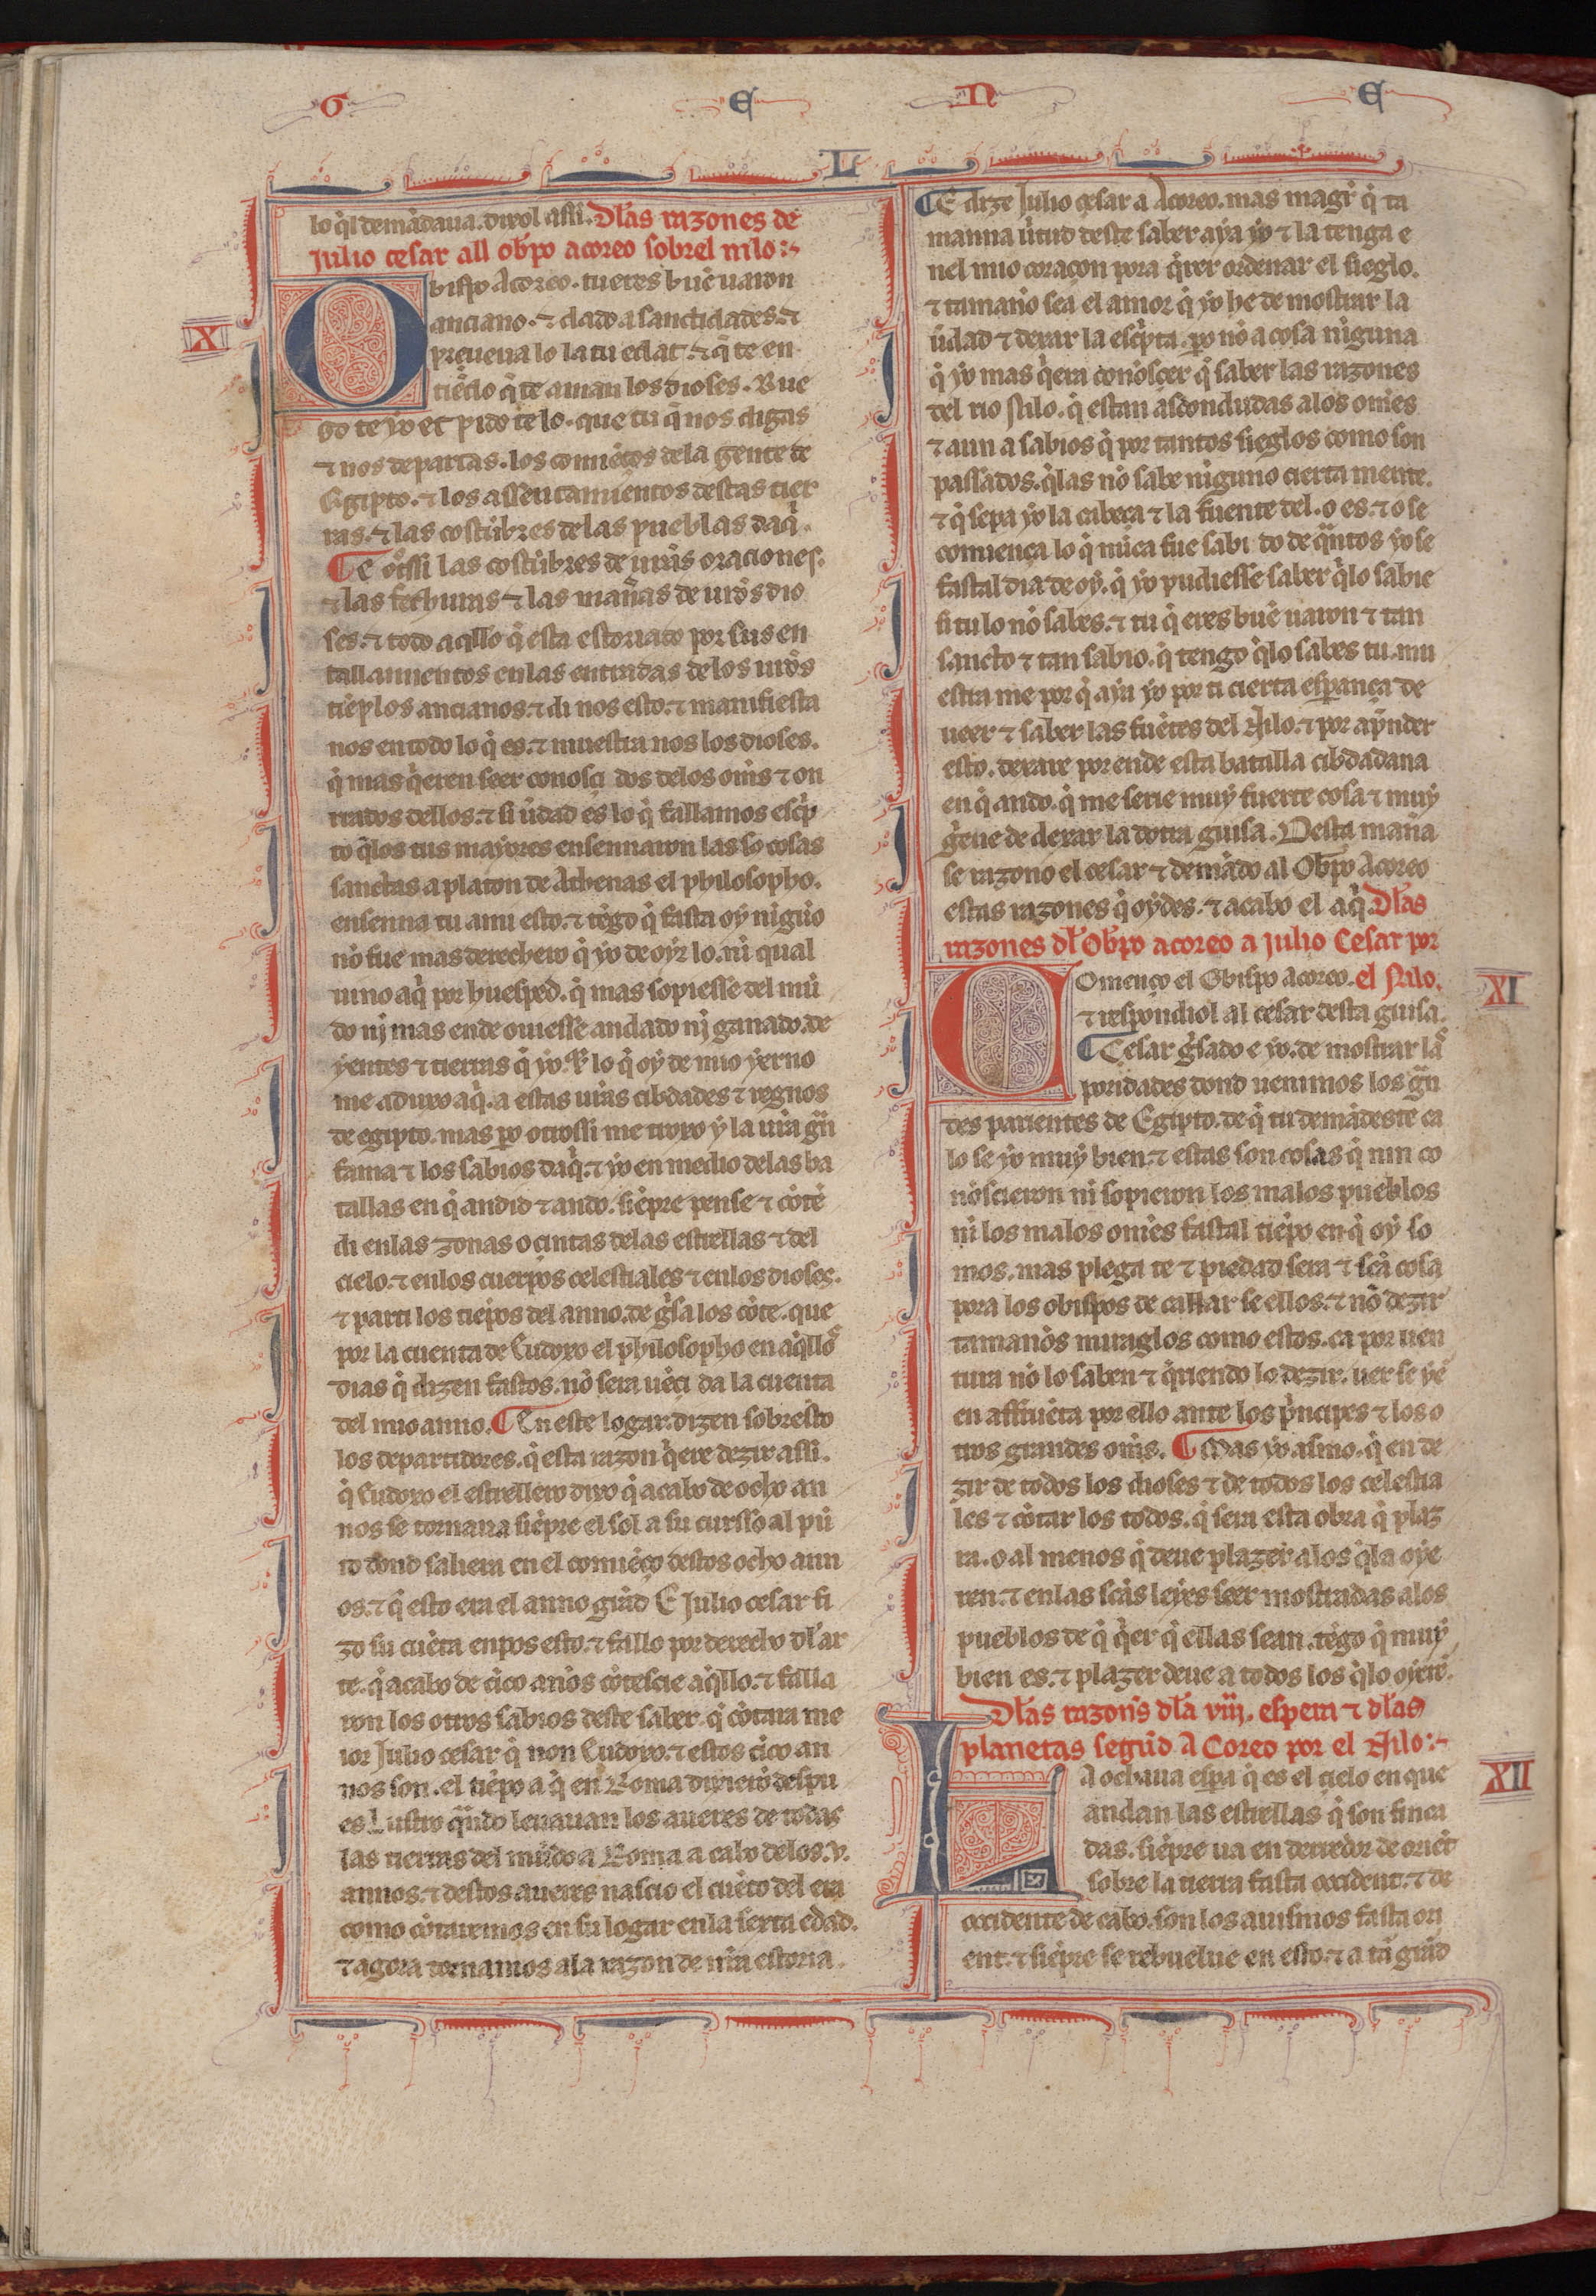 G E N E
L
lo q̃l demãdaua. dixol assi. Dl̃as razones de
Julio cesar all ob̃po acoreo sobrel nilo:~
X
Obispo Acoreo. tu eres buẽ uaron
anciano. ⁊ dado a sanctidades. ⁊
prueua lo la tu edat. ⁊ q̃ te en
tiẽdo q̃ te aman los dioses. Rue
go te yo et pido te lo. que tu q̃ nos digas
⁊ nos departas. los comiẽços dela gente de
Egipto. ⁊ los assentamientos destas tier
ras. ⁊ las costũbres delas pueblas daq̃.
¶ E otͦssi las costũbres de ur̃as oraciones.
⁊ las fechuras ⁊ las mañas de ur̃os dio
ses. ⁊ todo aq̃llo q̃ esta estoriado por sus en
tallamientos enlas entradas delos ur̃os
tiẽplos ancianos. ⁊ di nos esto. ⁊ manifiesta
nos en todo lo q̃ es. ⁊ muestra nos los dioses.
q̃ mas q̃eren seer conosci dos delos om̃s ⁊ on
rrados dellos. ⁊ si ũdad es lo q̃ fallamos esc̃p
to q̃los tus mayores ensennaron las so cosas
sanctas a platon de Athenas el philosopho.
ensenna tu ami esto. ⁊ tẽgo q̃ fasta oy nigũo
nõ fue mas derechero q̃ yo de oyr lo. ni qual
uino aq̃ por huesped. q̃ mas sopiesse del mũ
do nj mas ende ouiesse andado nj ganado. de
yentes ⁊ tierras q̃ yo. ⁊ lo q̃ oy de mio yerno
me aduxo aq̃. a estas ur̃as cibdades ⁊ regnos
de egipto. mas p̃o otrossi me troxo y la ur̃a gr̃
fama ⁊ los sabios daq̃. ⁊ yo en medio delas ba
tallas en q̃ andid ⁊ ando. siẽpre pense ⁊ cõtẽ
di enlas zonas o cintas delas estrellas ⁊ del
cielo. ⁊ enlos cuerpos celestiales ⁊ enlos dioses.
⁊ parti los tiẽpos del anno. de g̃sa los cõte. que
por la cuenta de Eudoxo el philosopho en aq̃llos
dias q̃ dizen fastos. nõ sera uẽçi da la cuenta
del mio anno. ¶ En este logar dizen sobresto
los departidores. q̃ esta razon q̃ere dezir assi.
q̃ Eudoxo el estrellero dixo q̃ acabo de ocho an
nos se tornaua siẽpre el sol a su curssо al pũ
to dond saliera en el comiẽço destos ocho ann
os. ⁊ q̃ esto era el anno grãd E Julio cesar fi
zo su cuẽta enpos esto. ⁊ fallo por derecho dl̃ ar
te. q̃ acabo de cĩco anõs cõtescie aq̃llo. ⁊ falla
ron los otros sabios deste saber. q̃ cõtara me
ior Julio cesar q̃ non Eudoxo. ⁊ estos cĩco an
nos son. el tiẽpo a q̃ en Roma dixierõ despu
es Lustro q̃ndo leuauan los aueres de todas
las tierras del mũdo a Roma a cabo delos. v.
annos. ⁊ destos aueres nascio el cuẽto del era
como cõtaremos en su logar enla sexta edad.
⁊ agora tornamos ala razon de nr̃a estoria.
¶ E dize Julio cesar a Acoreo. mas magr̃ q̃ ta
manna ũtud deste saber aya yo ⁊ la tenga e
nel mio coraçon pora q̃rer ordenar el sieglo.
⁊ tamaño sea el amor q̃ yo he de mostrar la
ũdad ⁊ dexar la esc̃pta. p̃o nõ a cosa nĩguna
q̃ yo mas q̃era conosçer q̃ saber las razones
del rio Nilo. q̃ estan ascondudas alos omẽs
⁊ aun a sabios q̃ por tantos sieglos como son
passados. q̃las nõ sabe nĩguno cierta mente.
⁊ q̃ sepa yo la cabeça ⁊ la fuente del. o es. ⁊ o se
comiença lo q̃ nũca fue sabi do de q̃ntos yo se
fastal dia de oy. q̃ yo pudiesse saber q̃lo sabie
si tu lo nõ sabes. ⁊ tu q̃ eres buẽ uaron ⁊ tan
sancto ⁊ tan sabio. q̃ tengo q̃lo sabes tu. mu
estra me por q̃ aya yo por ti cierta esperança de
ueer ⁊ saber las fuẽtes del Nilo. ⁊ por ap̃nder
esto. dexare por ende esta batalla cibdadana
en q̃ ando. q̃ me serie muy fuerte cosa ⁊ muy
g̃eue de dexar la dotra guisa. Desta mañа
se razono el cesar ⁊ demãdo al Ob̃po Acoreo
estas razones q̃ oydes. ⁊ acabo el aq̃. Dl̃as
razones dl̃ Ob̃po acoreo a Julio Cesar por
el Nilo.
XI
Començo el Obispo Acoreo.
⁊ respondiol al cesar desta guisa.
¶ Cesar g̃sado e yo. de mostrar las
poridades dond uenimos los gr̃
des parientes de Egipto. de q̃ tu demãdeste ca
lo se yo muy bien. ⁊ estas son cosas q̃ nin co
nõscieron ni sopieron los malos pueblos
ni los malos omẽs fastal tiẽpo en q̃ oy so
mos. mas plega te ⁊ piedad sera ⁊ sc̃a cosa
pora los obispos de callar se ellos. ⁊ nõ dezir
tamanõs miraglos como estos. ca por uen
tura nõ lo saben ⁊ q̃riendo lo dezir. uer se yẽ
en affruẽta por ello ante los p̃ncipes ⁊ los o
tros grandes om̃s. ¶ Mas yo asmo. q̃ en de
zir de todos los dioses ⁊ de todos los celestia
les ⁊ cõtar los todos. q̃ sera esta obra q̃ plaz
ra. o al menos q̃ deue plazer alos q̃la oye
ren. ⁊ enlas sc̃as leyes seer mostradas alos
pueblos de q̃ q̃er q̃ ellas sean. tẽgo q̃ muy
bien es. ⁊ plazer deue a todos los q̃lo oyerẽ.
Dl̃as razonẽs dl̃a viij. espera ⁊ dl̃as
planetas segũd ACoreo por el Nilo:~
XII
La ochaua esp̃a q̃ es el çielo en que
andan las estrellas q̃ son finca
das. siẽpre ua en derredor de oriẽt
sobre la tierra fasta occident. ⁊ de
occidente de cabo. son los auismos fasta ori
ent. ⁊ siẽpre se rebuelue en esto. ⁊ a tã grãd